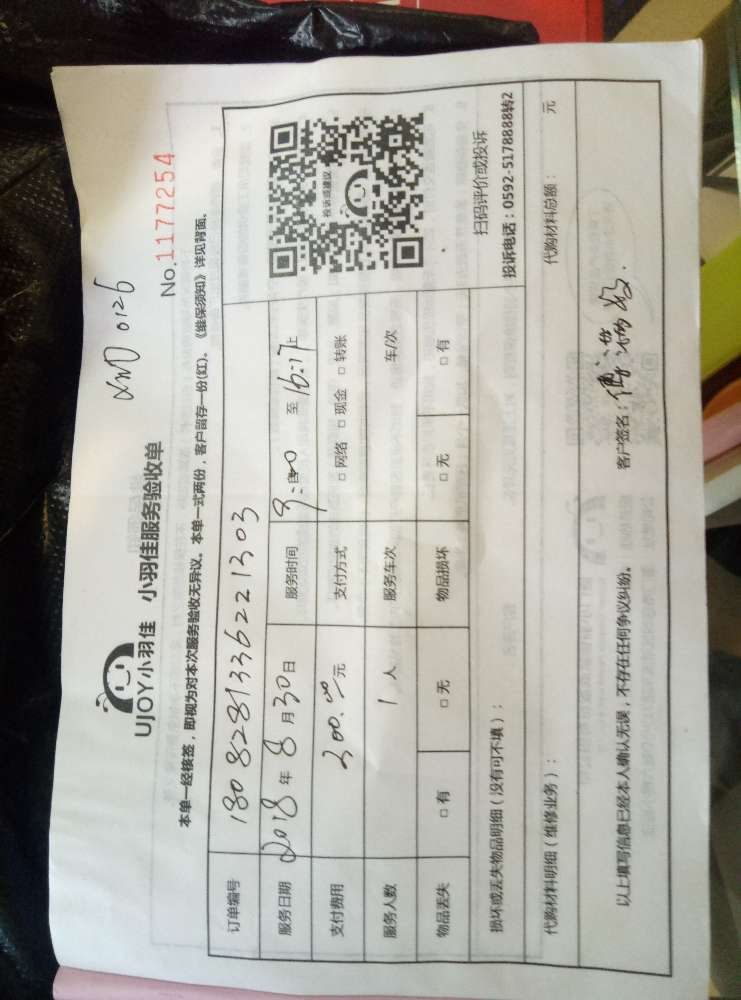 XMD 0126
No.1177254
UJOY小羽佳 小羽佳服务验收单
本单一经核签，即视为对本次服务验收无异议。本单一式两份，客户留存一份(红)。《维保须知》详见背面。
订单编号 1808281336221303
服务日期 2018 年 8 月 30 日 服务时间 9:00 至 16:17
支付费用 300.00 元 支付方式 □ 网络 □ 现金 □ 转账
服务人数 1 人 服务车次 车/次
物品丢失 □ 有 □ 无 物品损坏 □ 无 □ 有
投诉或建议
扫码评价或投诉
投诉电话：0592-5178888转2
损坏或丢失物品明细（没有可不填）：
代购材料明细（维修业务）： 代购材料总额： 元
以上填写信息已经本人确认无误，不存在任何争议纠纷。 客户签名：